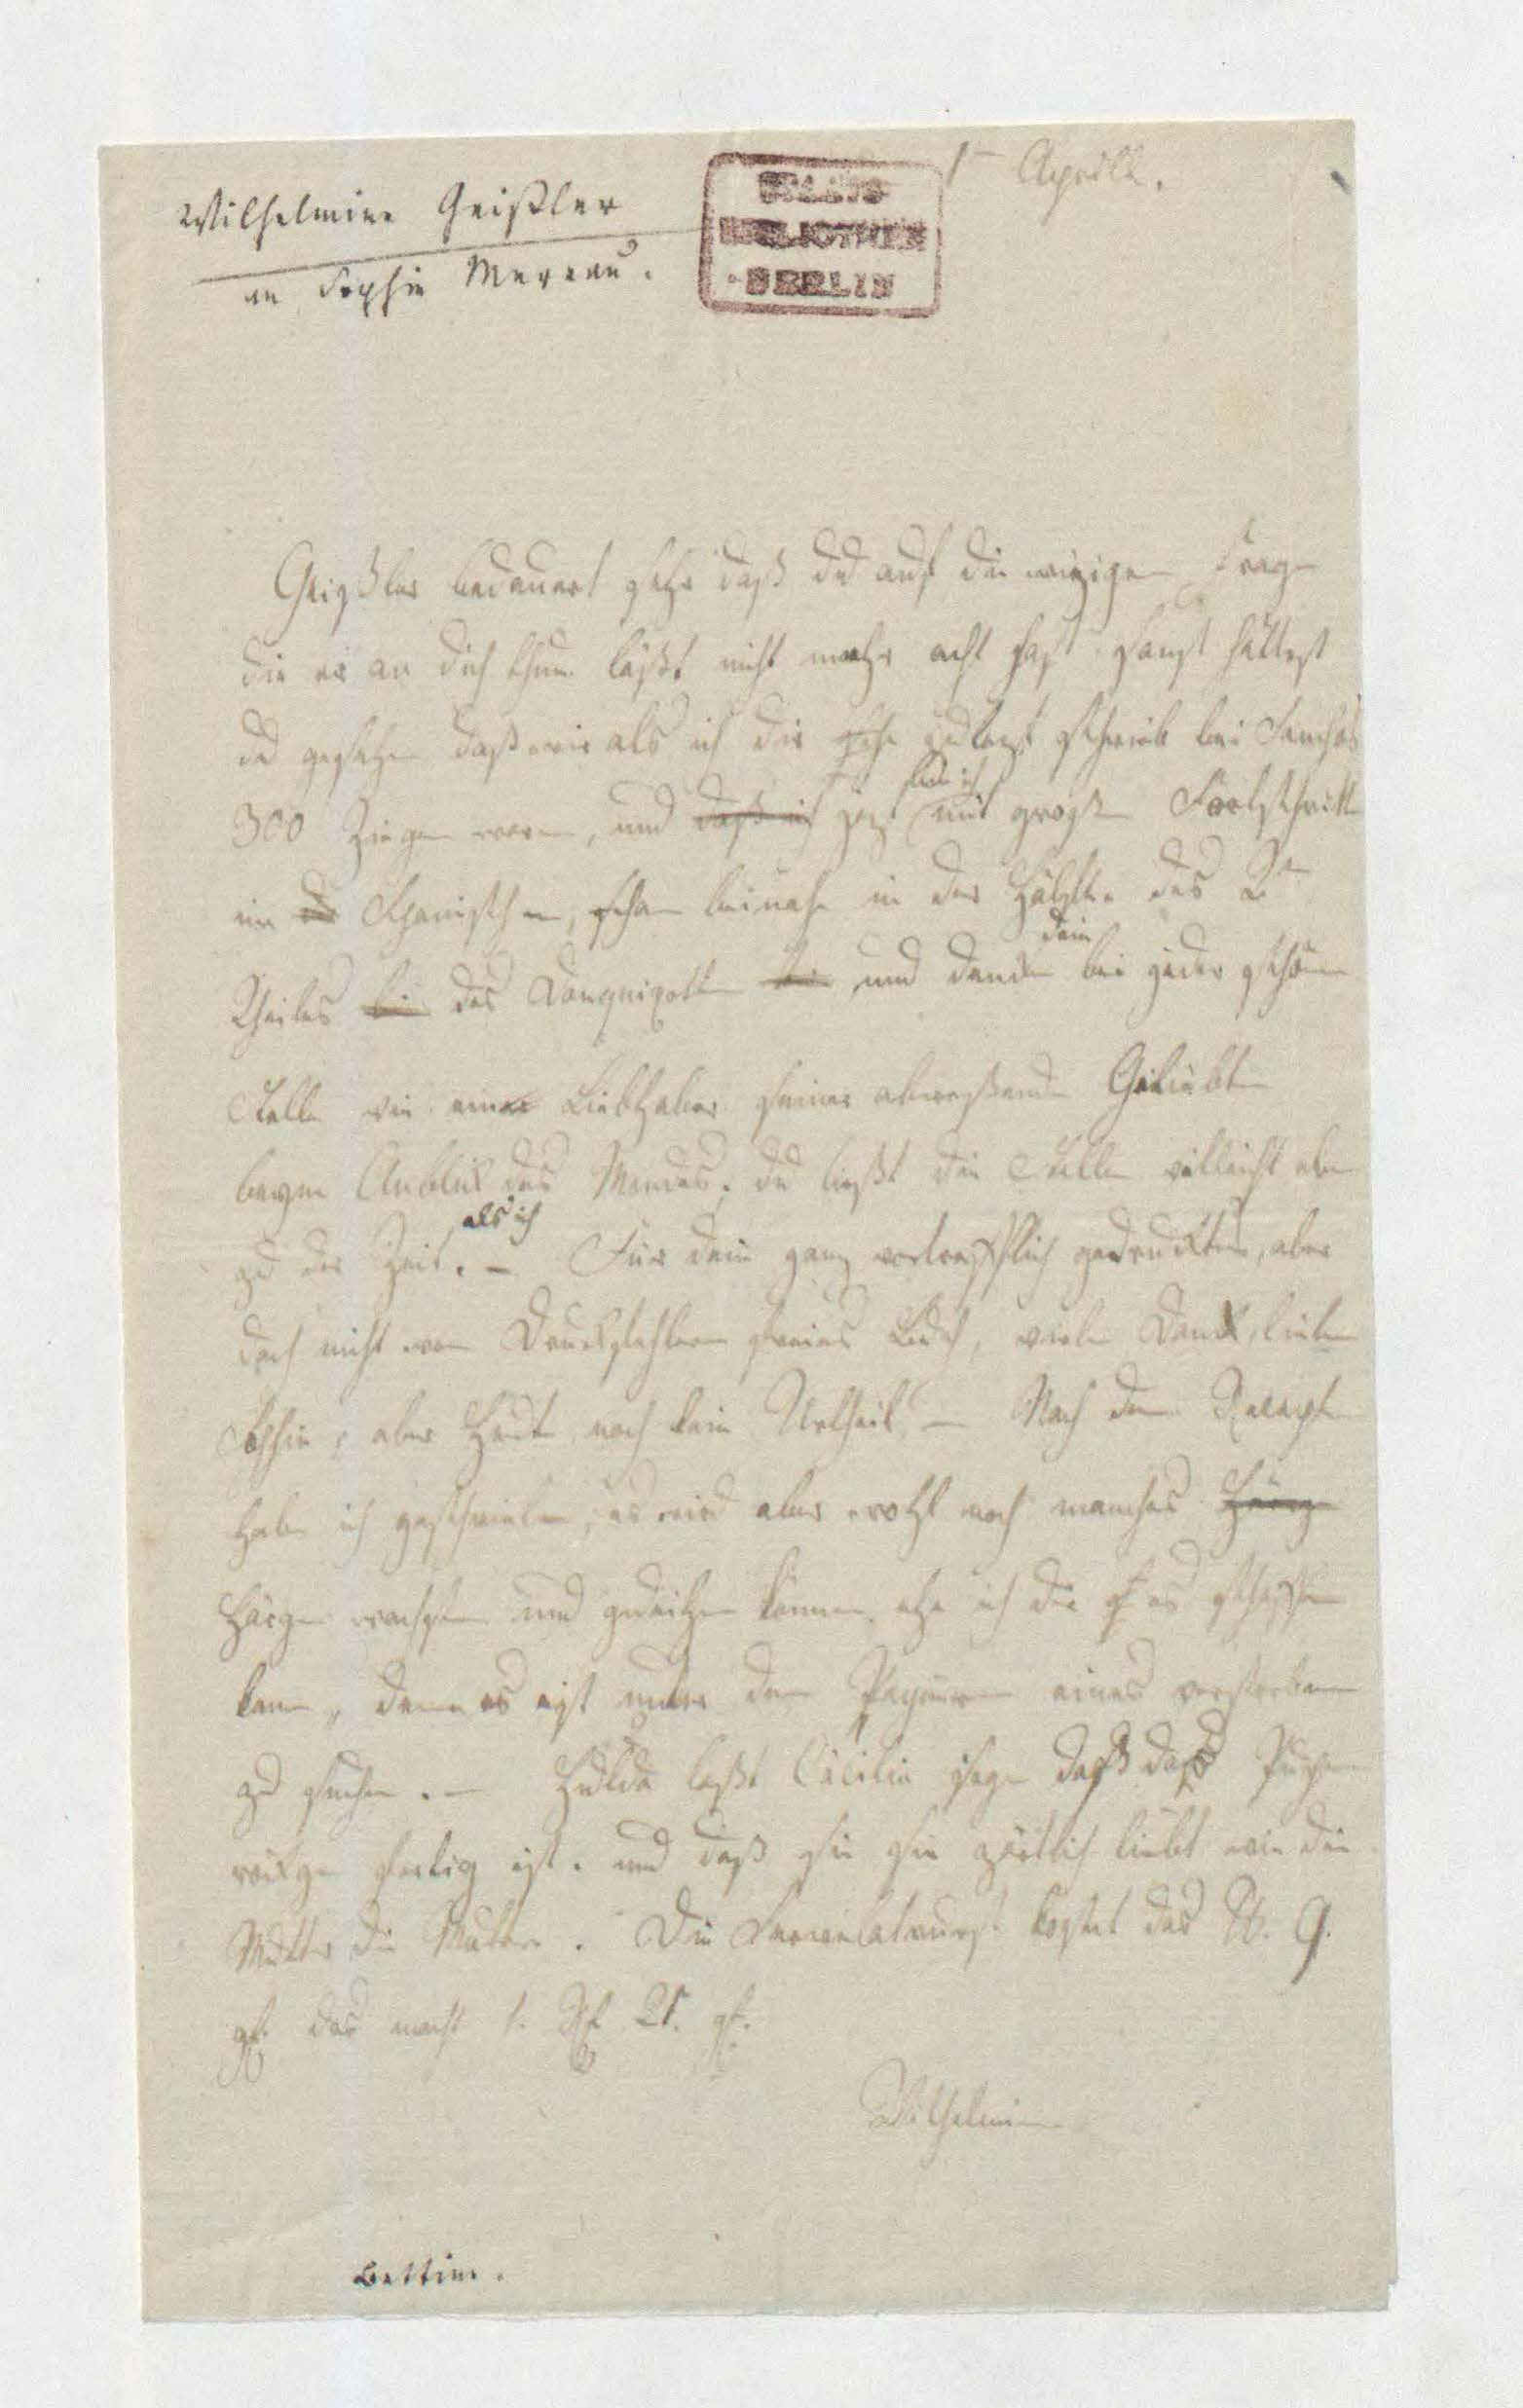 1 Aprill.
Wilhelmine Geißler
an Sophie Mereau.
STAATS
BIBLIOTHEK
BERLIN
Geißler bedauert sehr daß du auf die einzigen Frage
die er an dich thun läßt nicht mehr acht hast sonst hättest
du gesehen daß wir als ich dir zulezt schrieb bei Sanchos
300 Ziegen waren, und daß ich jezt sind ich mit große Fortschritte
im Spanischen, schon beinahe in der Hälfte des 2n
Theiles des Donquixotte und denke dein bei jeder schönen
Stelle wie ein Liebhaber seiner abweßende Geliebte
beym Anblik des Mondes. du ließt die Stelle vielleicht eben
zu der Zeit als ich. – Für dein ganz vortrefflich gedrucktes, aber
doch nicht von Druckfehlern freies Buch, vielen Dank, liebe
Sophie, aber Heute noch kein Urtheil – Nach dem Recept
habe ich geschrieben, es wird aber wohl noch manches
Härgen wachsen und gedeihen können ehe ich dir es schaffen
kann, denn es ist unter den Papieren eines verstorbenen
zu suchen. – Hulda laßt Cäcilie sagen daß das Puppen
fertig ist. und daß sie sie zärtlich liebt wie die
Mutter die Mutter. Die Servelatwurst kostet das ℔. 9.
gl. das macht 1. Rh 21. gl.
Wilhelmine
Bettine.